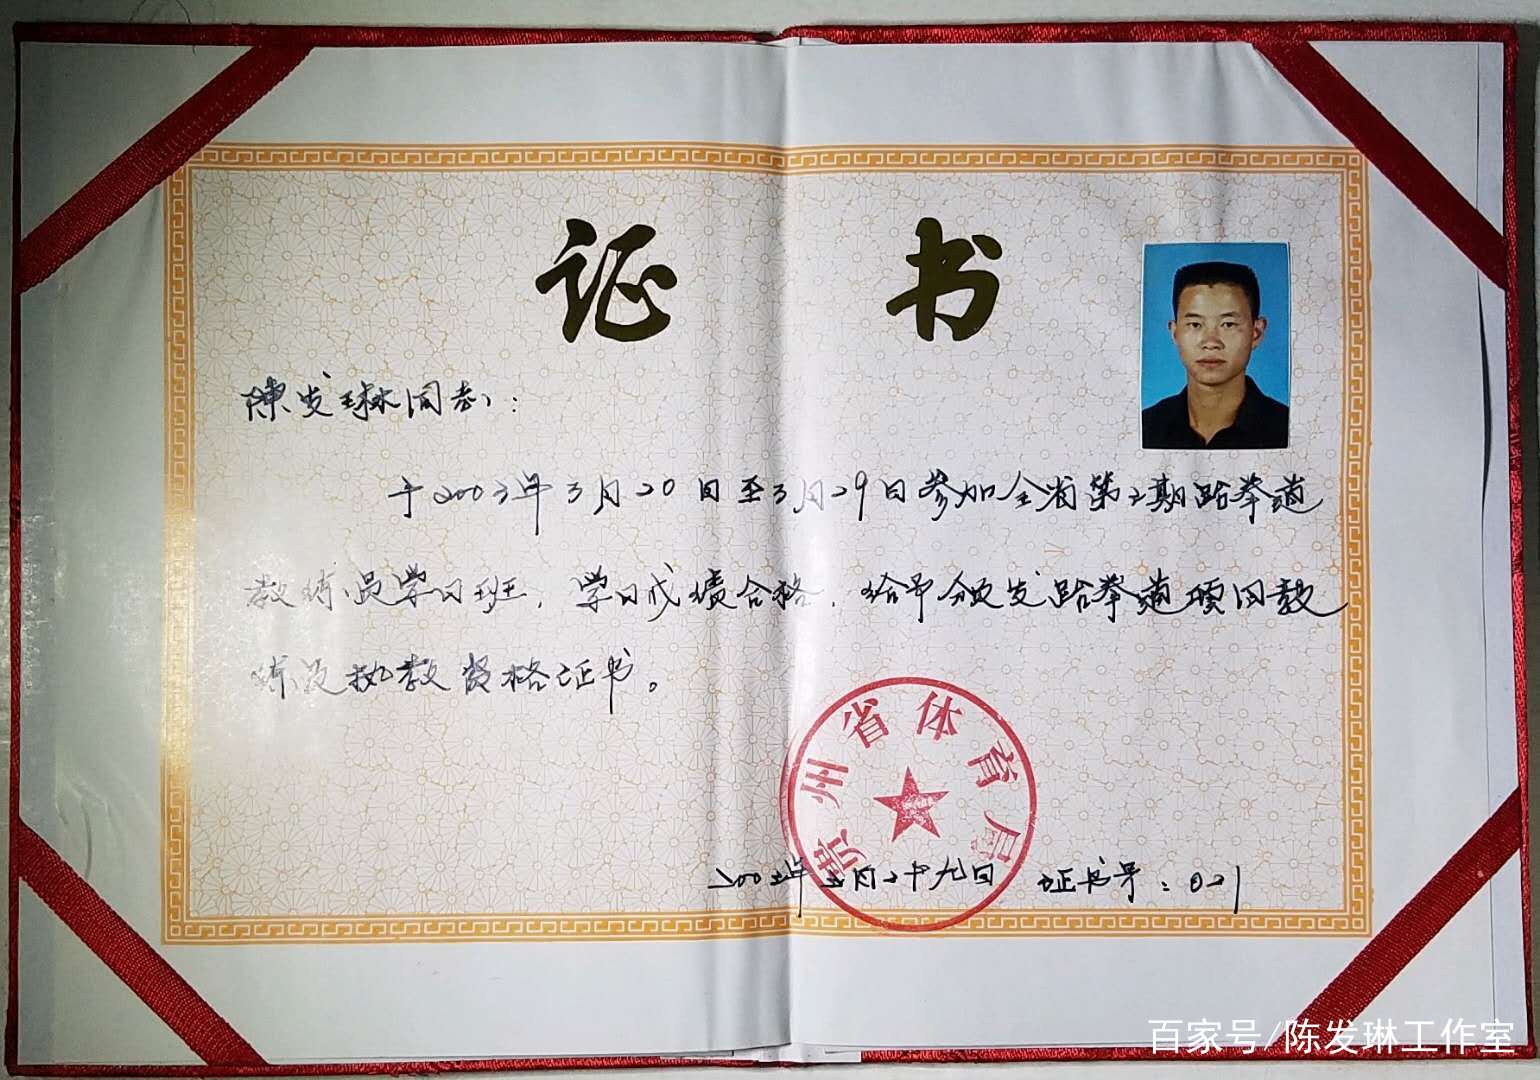 证书
陈发琳同志：
于2003年3月20日至3月29日参加全省第二期跆拳道
教练员学习班，学习成绩合格，给予颁发跆拳道项目教
练员执教资格证书。
贵州省体育局
2003年三月二十九日 证书号：021
百家号/陈发琳工作室